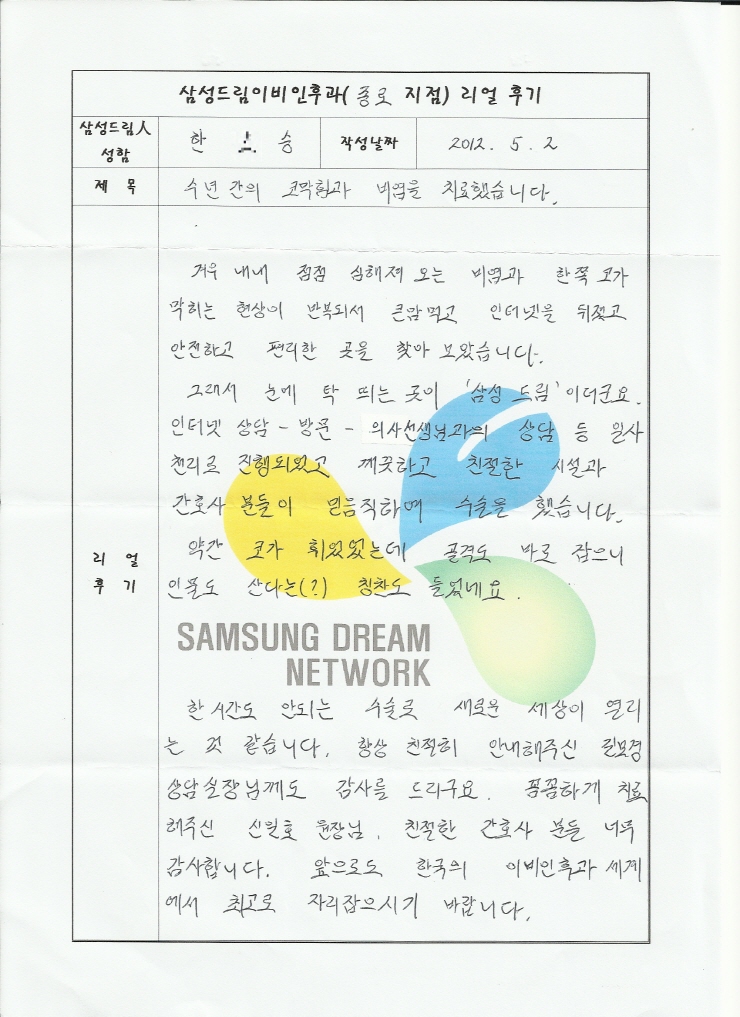 삼성드림이비인후과(종로 지점) 리얼 후기
삼성드림人
성함
한 승
작성날짜
2012. 5. 2
제 목
수년 간의 코막힘과 비염을 치료했습니다.
겨우 내내 점점 심해져 오는 비염과 한쪽 코가
막히는 현상이 반복되서 큰맘먹고 인터넷을 뒤젔고
안전하고 편리한 곳을 찾아 보았습니다.
그래서 눈에 탁 띄는 곳이 '삼성 드림'이더군요.
인터넷 상담 - 방문 - 의사선생님과의 상담 등 일사
천리로 진행되었고 깨끗하고 친절한 시설과
간호사 분들이 믿음직하여 수술을 했습니다.
약간 코가 휘었었는데 골격도 바로 잡으니
인물도 산다는(?) 칭찬도 들었네요.
리 얼
후 기
SAMSUNG DREAM
NETWORK
한시간도 안되는 수술로 새로운 세상이 열리
는 것 같습니다. 항상 친절히 안내해주신
상담실장님께도 감사를 드리구요. 꼼꼼하게 치료
해주신 신일호 원장님, 친절한 간호사 분들 너무
감사합니다. 앞으로도 한국의 이비인후과 세계
에서 최고로 자리잡으시기 바랍니다.